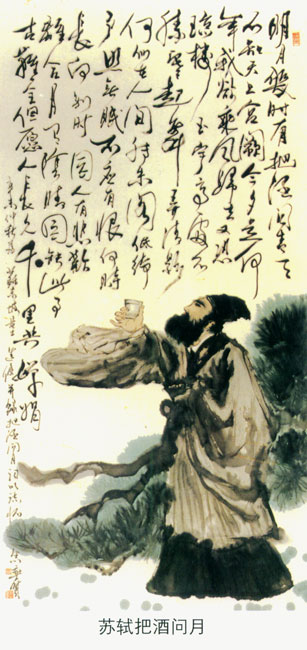 明月幾时有把酒问青天
不知天上宫阙今夕是何
年我欲乘风归去又恐
琼楼玉宇高处不
胜寒起舞弄清影
何似在人间转朱阁低绮
户照无眠不应有恨何时
长向别时圆人有悲歡
離合月有陰晴圆缺此事
古難全但愿人長久千里共嬋娟
苏轼把酒问月